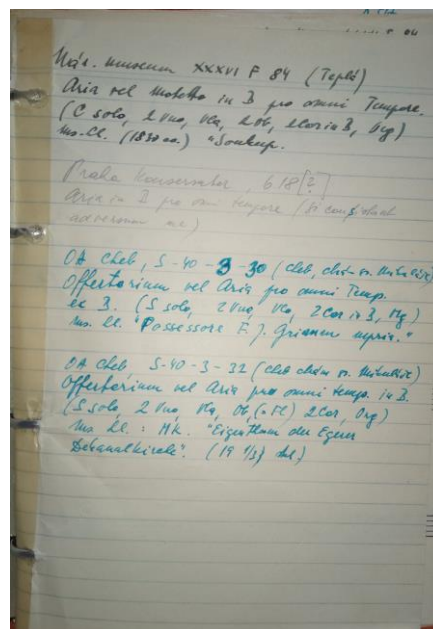 Nár. museum XXXVI F 84 (Teplá)
Aria vel motetto in B pro omni Tempore.
(C solo, 2 vno, vla, 2 Ob, 2 Cor in B, Org)
ms. cl. (1830 ca.) "Soukup.
Praha Konservator, 618 [?]
Aria in B pro omni tempore (Si consistant
adversum me)
OA Cheb, S-40-3-30 (Cheb, chrám sv. Mikuláše)
Offertorium vel Aria pro omni Temp.
ex B. (S solo, 2 Vno, Vla, 2 Cor in B, Org)
ms. cl. "Possessore F. J.
OA Cheb, S-40-3-32 (Cheb chrám sv. Mikuláše)
Offertorium vel Aria pro omni temp. in B.
(S solo, 2 Vno, Vla, Ob, (=Fl) 2 Cor, Org)
ms. cl.: "Eigenthum der Egerer
Dekanalkirche". (19 1/3)